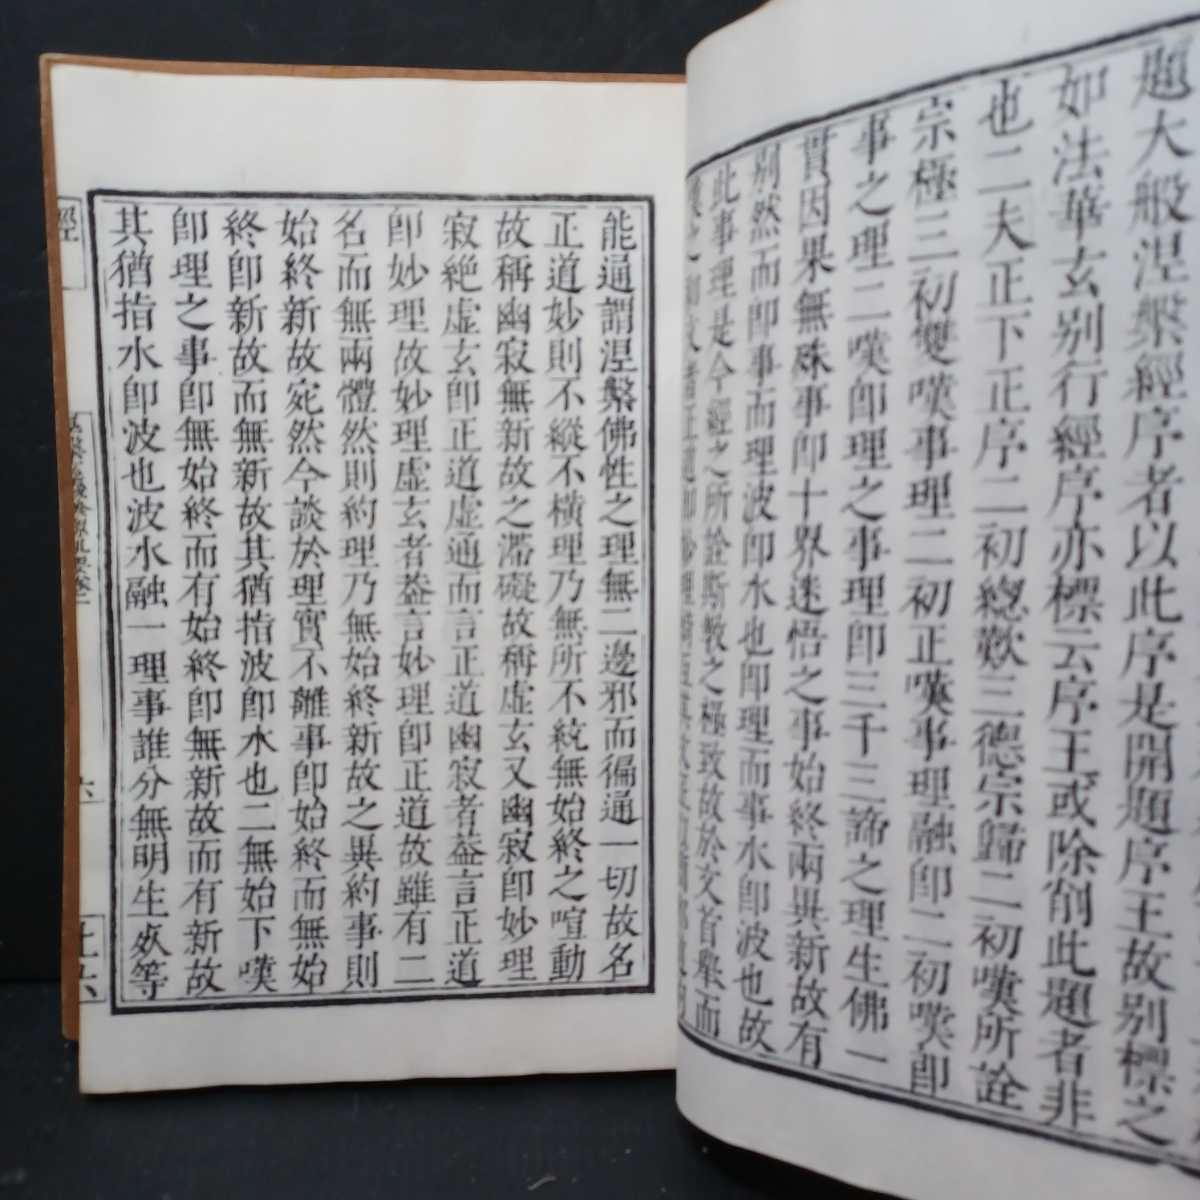 題大般涅槃經序者以此序是開題序王故別標之
如法華玄別行經序亦標云序王或除削此題者非
也二夫正下正序二初總歎三德宗歸二初嘆所詮
宗極三初雙嘆事理二初正嘆事理融卽二初嘆卽
事之理二嘆卽理之事理卽三千三諦之理生佛一
貫因果無殊事卽十界迷悟之事始終兩異新故有
別然而卽事而理波卽水也卽理而事水卽波也故
此事理是今經之所詮斯教之極致故於文首舉而
能通謂涅槃佛性之理無二邊邪而徧通一切故名
正道妙則不縱不橫理乃無所不統無始終之喧動
故稱幽寂無新故之滯礙故稱虛玄又幽寂卽妙理
寂絶虛玄卽正道虛通而言正道幽寂者葢言正道
卽妙理故妙理虛玄者葢言妙理卽正道故雖有二
名而無兩體然則約理乃無始終新故之異約事則
始終新故宛然今談於理實不離事卽始終而無始
終卽新故而無新故其猶指波卽水也二無始下嘆
卽理之事卽無始終而有始終卽無新故而有新故
其猶指水卽波也波水融一理事誰分無明生㳄等
經
六